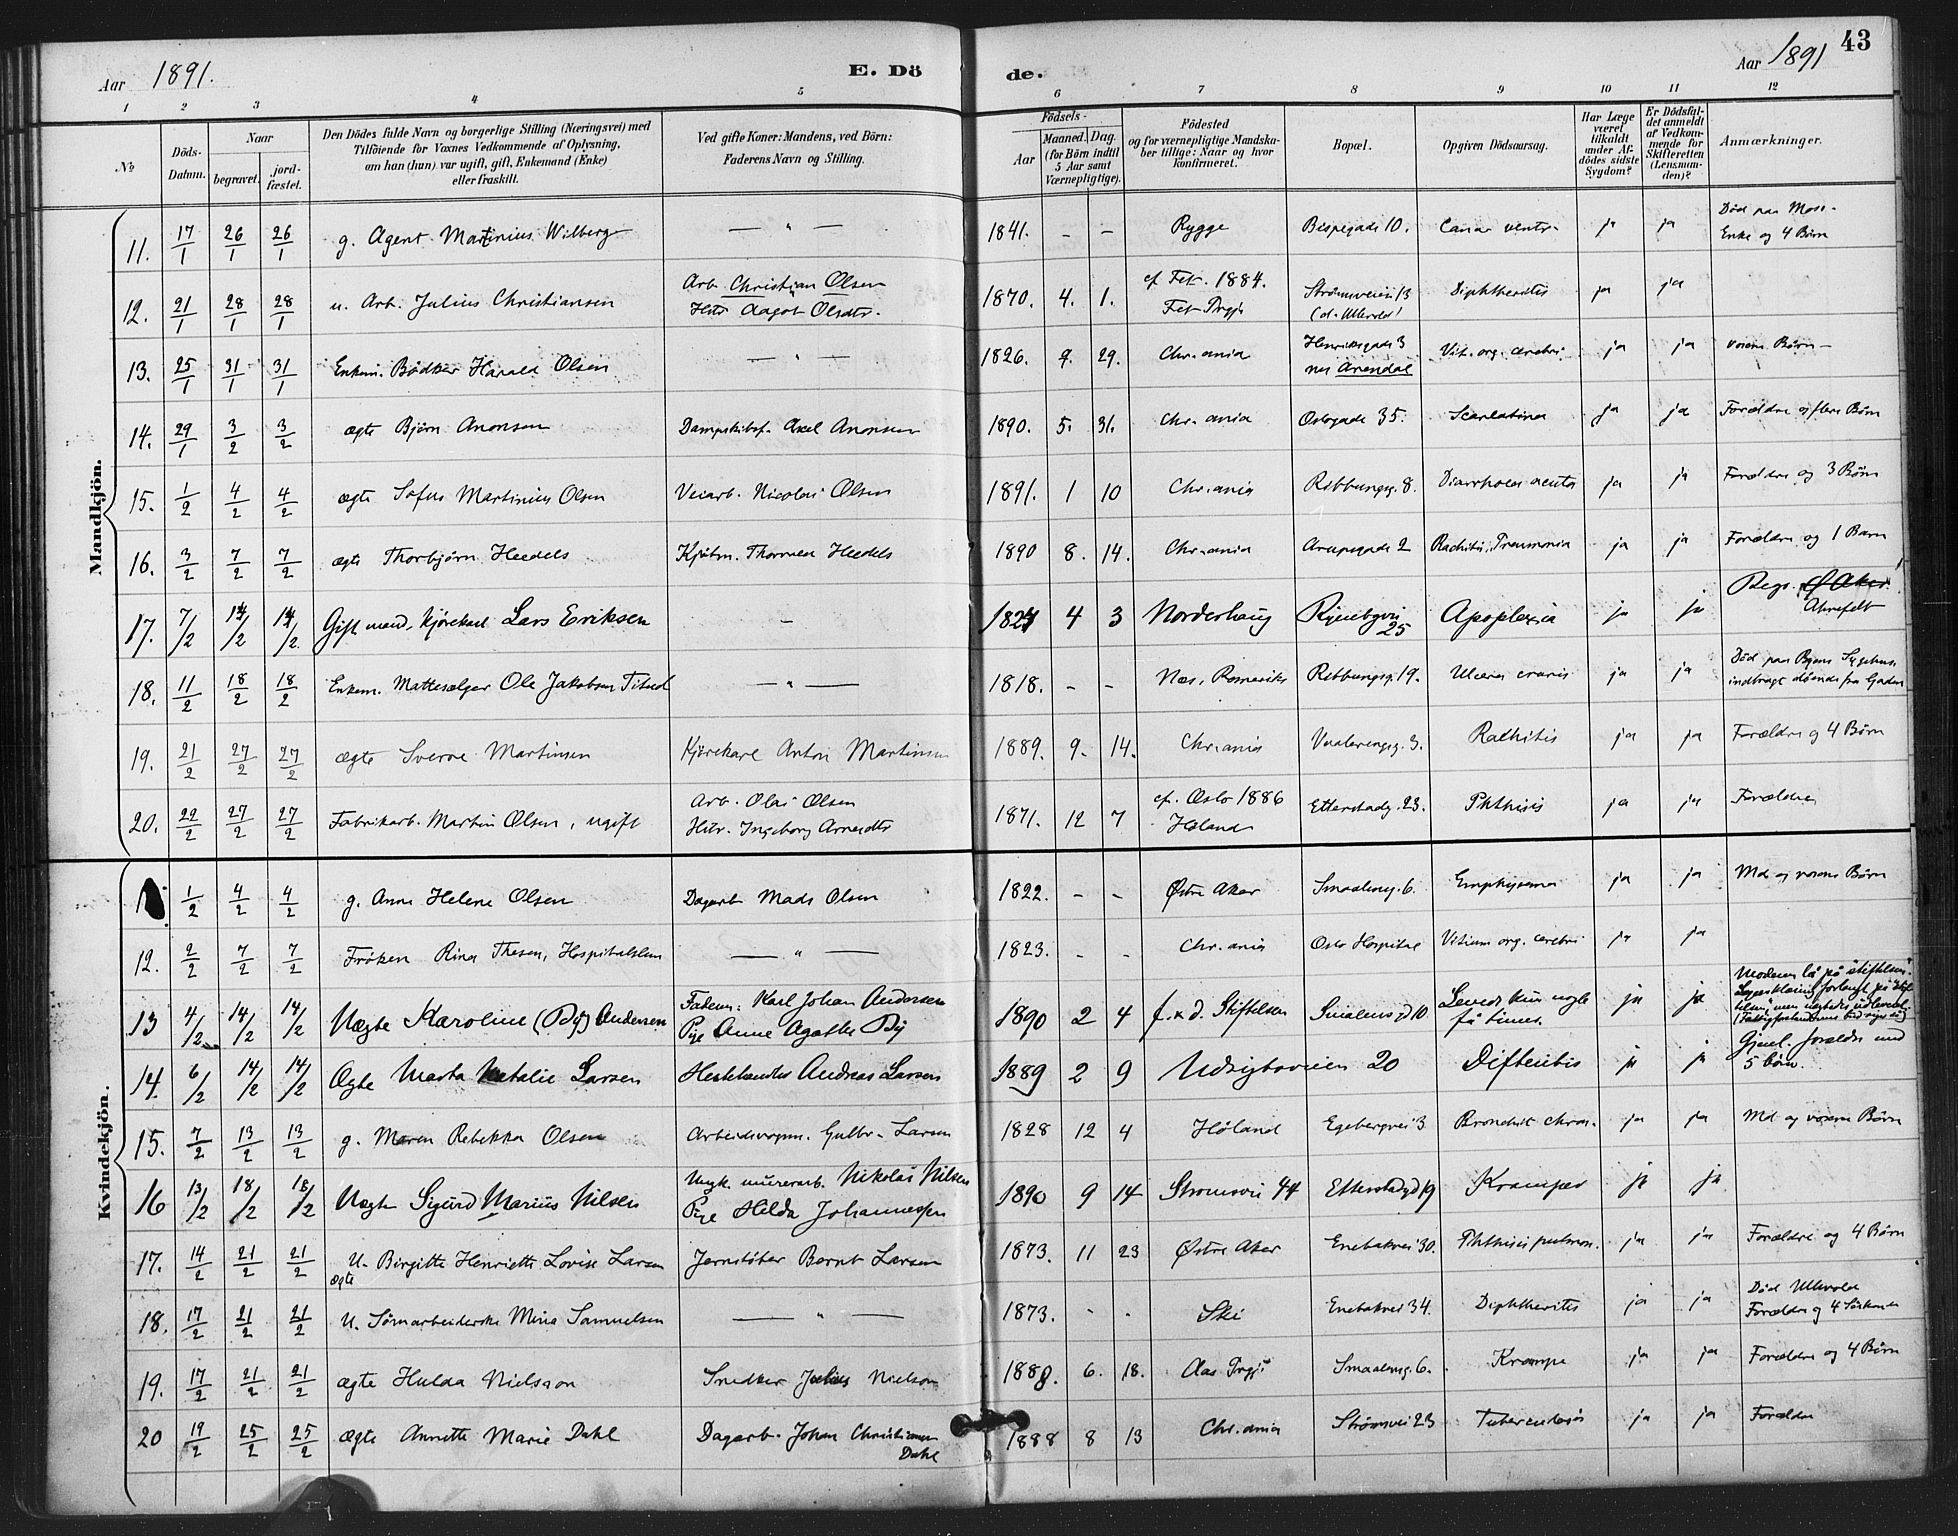 Aar 1891. E. Dö de. Aar 1891 43
1 2 3 4 5 6 7 8 9 10 11 12
No
Döds-Datum.
Naar
begravet.
jord-fæstet.
Den Dödes fulde Navn og borgerlige Stilling (Næringsvei) med
Tilföiende for Voxnes Vedkommende af Oplysning,
om han (hun) var ugift, gift, Enkemand (Enke)
eller fraskilt.
Ved gifte Koner: Mandens, ved Börn:
Faderens Navn og Stilling.
Födsels-
Aar
Maaned. Dag.
(for Börn indtil
5 Aar samt
Værnepligtige).
Födested
og for værnepligtige Mandska-
ber tillige: Naar og hvor
konfirmeret.
Bopæl.
Opgiven Dödsaarsag.
Har Læge
været
tilkaldt
under Af-
dödes sidste
Sygdom?
Er Dödsfal-
det anmeldt
af Vedkom-
mende for
Skifteretten
(Lensman-
den)?
Anmærkninger.
Mandkjön.
11. 17/1 26/1 26/1 g. Agent Martinius Wilberg — " — 1841. – – Rygge Bispegade 10. Cancer ventr. ja ja Død paa Moss. Enke og 4 Børn
12. 21/1 28/1 28/1 u. Arb. Julius Christiansen Arb. Christian Olsen Hstr Aagot Olsdtr. 1870. 4. 1. cf Fet. 1884. Fet Prgj. Strømsveien 13 (d. Ullevold) Diphtheritis ja ja
13. 25/1 31/1 31/1 Enkem. Bødker Harald Olsen — " — 1826. 9. 29. Chr.ania Henriksgade 3 Arendal Vit. org. cerebri ja ja voxne Børn
14. 29/1 3/2 3/2 ægte Bjørn Anonsen Dampskibsf. Axel Anonsen 1890. 5. 31. Chr.ania Oslogade 35. Scarlatina ja ja Forældre og flere Børn
15. 1/2 4/2 4/2 ægte Sofus Martinius Olsen Veiarb. Nicolai Olsen 1891. 1 10 Chr.ania Ribbungsg. 8. Diarrhoea acuta ja ja Forældre og 3 Børn
16. 3/2 7/2 7/2 ægte Thorbjørn Heedels Kjøbm. Heedels 1890 8. 14. Chr.ania Arupsgade 2 Rachitis, Pneumonia ja ja Forældre og 1 Barn
17. 7/2 14/2 14/2 Gift mand, Kjørekarl Lars Eriksen – 1824 4 3 Norderhaug Ryenbgvei 25 Apoplexia ja ja Begr. Ø Aker.
18. 11/2 18/2 18/2 Enkem. Mattesælger Ole Jakobsen — " — 1818. – – Næs, Romerike Ribbungsg. 19. Ulcera cruris ja ja Død paa Byens Sygehus, indbragt døende fra Gaden
19. 21/2 27/2 27/2 ægte Sverre Martinsen Kjørekarl Anton Martinsen 1889. 9. 14. Chr.ania Vaalerengsg. 3. Rachitis ja ja Forældre og 4 Børn
20. 22/2 27/2 27/2 Fabrikarb. Martin Olsen, ugift Arb. Olai Olsen Hstr. Ingeborg Arnesdtr 1871. 12 7 cf. Oslo 1886 Høland Etterstadg. 23. Phthisis ja ja Forældre
Kvindekjön.
1/2 4/2 4/2 g. Anne Helene Olsen Dagarb. Mads Olsen 1822. – – Østre Aker Smaalensg. 6. Emphysema ja ja Md og voxne Børn
12. 2/2 7/2 7/2 Frøken Rina Thesen, Hospitalslem — " — 1823. – – Chr.ania Oslo Hospital Vitium org. cerebri ja ja
13 4/2 14/2 14/2 Uægte Karoline (By) Andersen Faderen: Karl Johan Andersen Pige Anne Agathe By 1890 2 4 f. d. Stiftelsen Smalensgd 10 Levede kun nogle få timer. ja ja Moderen lå på "stiftelsen".
14. 6/2 14/2 14/2 Ægte Marta Natalie Larsen Hestehandler Andreas Larsen 1889 2 9 Udsigtsveien 20 Difteritis ja ja Gjenl. forældre med 5 børn.
15. 7/2 13/2 13/2 g. Maren Rebekka Olsen Arbeidsvogm. Gulbr. Larsen 1828 12 4 Høland Egebergvei 3 Bronchit chron. ja ja Md og voxne Børn
16 13/2 18/2 18/2 Uægte Sigurd Marius Nilsen Ungk. murerarb. Nikolai Nilsen Pige Hilda Johannessen 1890 9 14 Strømsvei 44 Etterstadgd 19 Kramper ja ja
17. 14/2 21/2 21/2 U. Birgitte Henriette Lovise Larsen ægte Jernstøber Bernt Larsen 1873. 11 23 Østre Aker Enebakvei 30. Phthisis pulmon. ja ja Forældre og 4 Børn
18. 17/2 21/2 21/2 U. Sømarbeiderske Mina Samuelsen — " — 1873. – – Ski Enebakvei 34. Diphtheritis ja ja Død Ullevold Forældre og 4 Søskende
19. 17/2 21/2 21/2 ægte Hulda Nielsson Snedker Julius Nielson 1888. 6. 18. Aas Prgj Smaalensg. 6. Krampe ja ja Forældre og 4 Børn
20 19/2 25/2 25/2 ægte Annette Marie Dahl Dagarb. Johan Christiansen Dahl 1888 8 13 Chr.ania Strømsvei 23 Tuberculosis ja ja Forældre